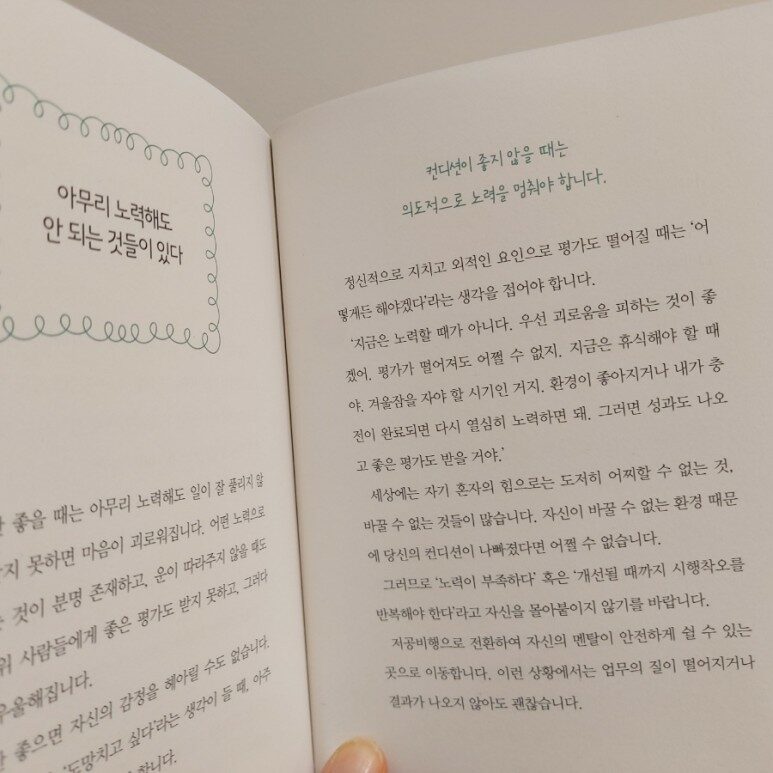 아무리 노력해도
안 되는 것들이 있다
좋을 때는 아무리 노력해도 일이 잘 풀리지 않
못하면 마음이 괴로워집니다. 어떤 노력으로
것이 분명 존재하고, 운이 따라주지 않을 때도
사람들에게 좋은 평가도 받지 못하고, 그러다
우울해집니다.
좋으면 자신의 감정을 헤아릴 수도 없습니다.
'도망치고 싶다'라는 생각이 들 때, 아주
합니다.
컨디션이 좋지 않을 때는
의도적으로 노력을 멈춰야 합니다.
정신적으로 지치고 외적인 요인으로 평가도 떨어질 때는 '어
떻게든 해야겠다'라는 생각을 접어야 합니다.
'지금은 노력할 때가 아니다. 우선 괴로움을 피하는 것이 좋
겠어. 평가가 떨어져도 어쩔 수 없지. 지금은 휴식해야 할 때
야. 겨울잠을 자야 할 시기인 거지. 환경이 좋아지거나 내가 충
전이 완료되면 다시 열심히 노력하면 돼. 그러면 성과도 나오
고 좋은 평가도 받을 거야.'
세상에는 자기 혼자의 힘으로는 도저히 어찌할 수 없는 것,
바꿀 수 없는 것들이 많습니다. 자신이 바꿀 수 없는 환경 때문
에 당신의 컨디션이 나빠졌다면 어쩔 수 없습니다.
그러므로 '노력이 부족하다' 혹은 '개선될 때까지 시행착오를
반복해야 한다'라고 자신을 몰아붙이지 않기를 바랍니다.
저공비행으로 전환하여 자신의 멘탈이 안전하게 쉴 수 있는
곳으로 이동합니다. 이런 상황에서는 업무의 질이 떨어지거나
결과가 나오지 않아도 괜찮습니다.